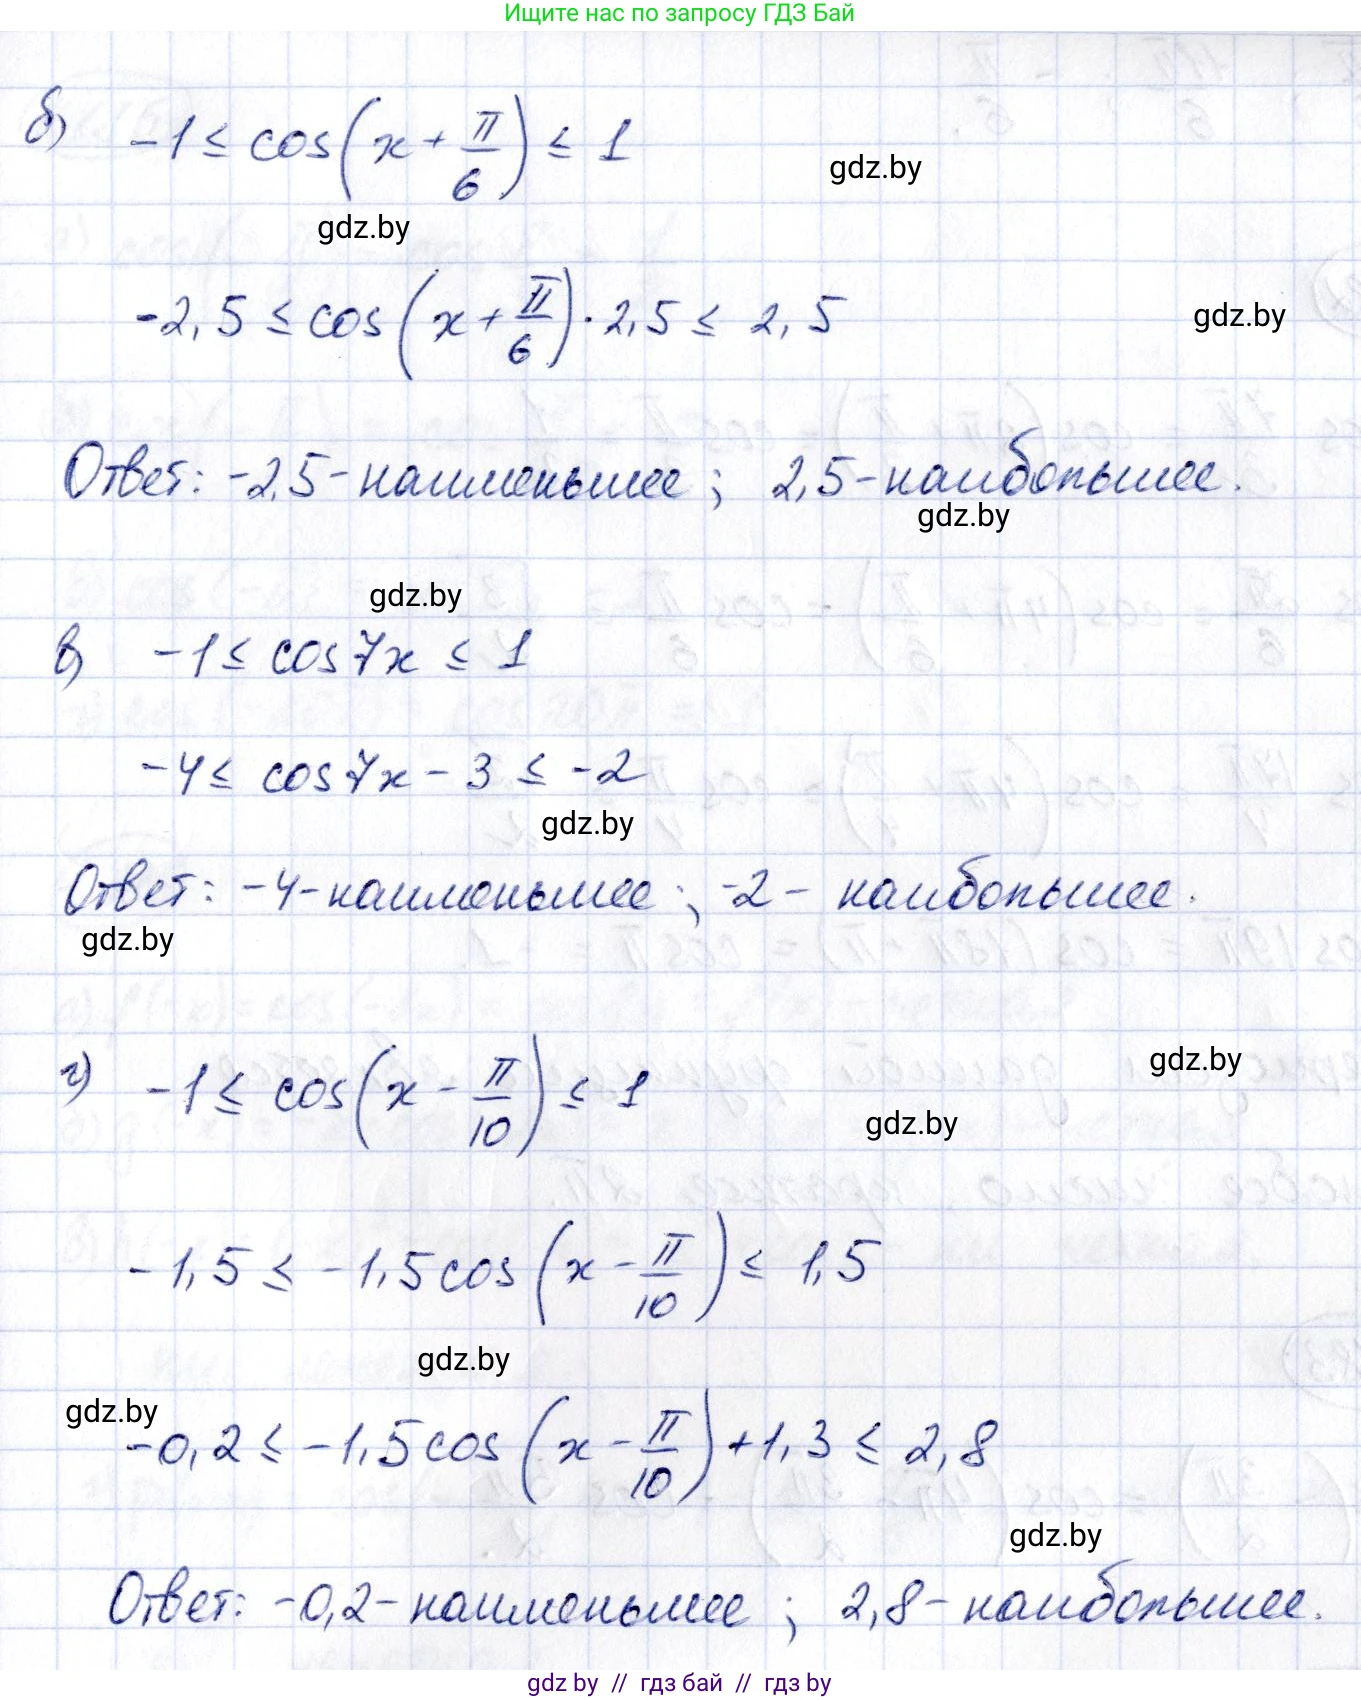 Ищите нас по запросу ГДЗ Бай
б) -1 ≤ cos(x + π/6) ≤ 1
gdz.by
gdz.by
-2,5 ≤ cos(x + π/6) · 2,5 ≤ 2,5
gdz.by
Ответ: -2,5 - наименьшее ; 2,5 - наибольшее.
gdz.by
gdz.by
в) -1 ≤ cos7x ≤ 1
-4 ≤ cos7x - 3 ≤ -2
gdz.by
Ответ: -4 - наименьшее ; -2 - наибольшее.
gdz.by
г) -1 ≤ cos(x - π/10) ≤ 1
gdz.by
gdz.by
-1,5 ≤ -1,5cos(x - π/10) ≤ 1,5
gdz.by
gdz.by
-0,2 ≤ -1,5cos(x - π/10) + 1,3 ≤ 2,8
gdz.by
Ответ: -0,2 - наименьшее ; 2,8 - наибольшее.
gdz by // гдз бай // гдз by